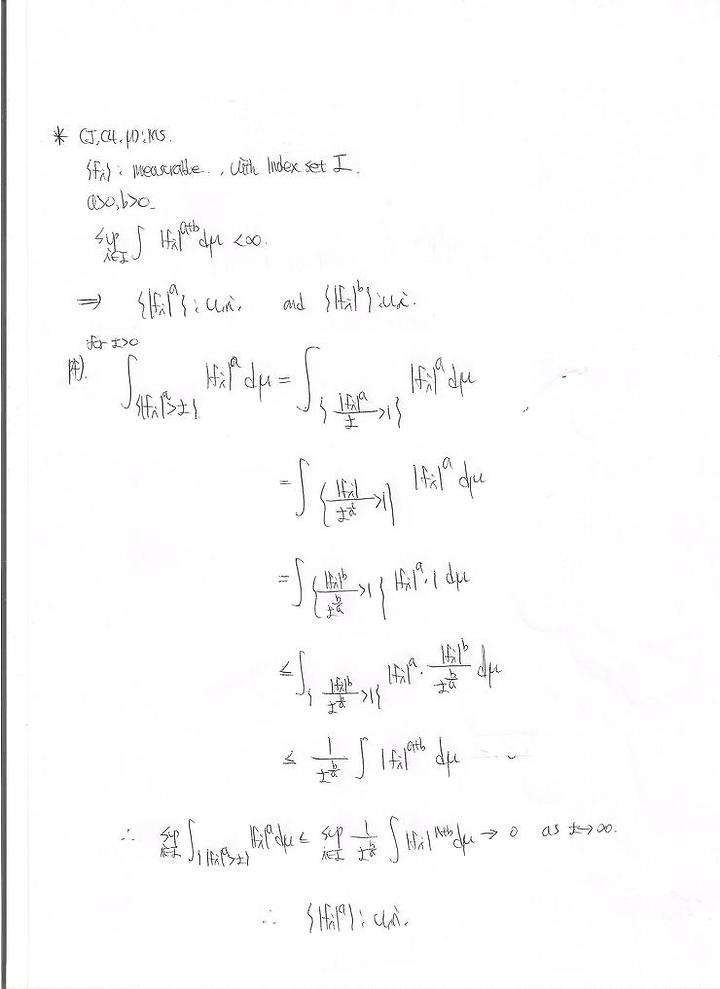 * (J, 𝒜, μ): m.s.
{fλ} : measurable. , with Index set I.
a>0, b>0.
sup_{λ∈I} ∫ |fλ|^{a+b} dμ < ∞.
⇒ {|fλ|^a} : u.i. and {|fλ|^b} : u.i.
for t>0
pf). ∫_{{|fλ|^a > t}} |fλ|^a dμ = ∫_{{|fλ|^a / t > 1}} |fλ|^a dμ
= ∫_{{|fλ| / t^{1/a} > 1}} |fλ|^a dμ
= ∫_{{|fλ|^b / t^{b/a} > 1}} |fλ|^a · 1 dμ
≤ ∫_{{|fλ|^b / t^{b/a} > 1}} |fλ|^a · |fλ|^b / t^{b/a} dμ
≤ 1 / t^{b/a} ∫ |fλ|^{a+b} dμ
∴ sup_{λ∈I} ∫_{{|fλ|^a > t}} |fλ|^a dμ ≤ sup_{λ∈I} 1 / t^{b/a} ∫ |fλ|^{a+b} dμ → 0 as t→∞.
∴ {|fλ|^a} : u.i.